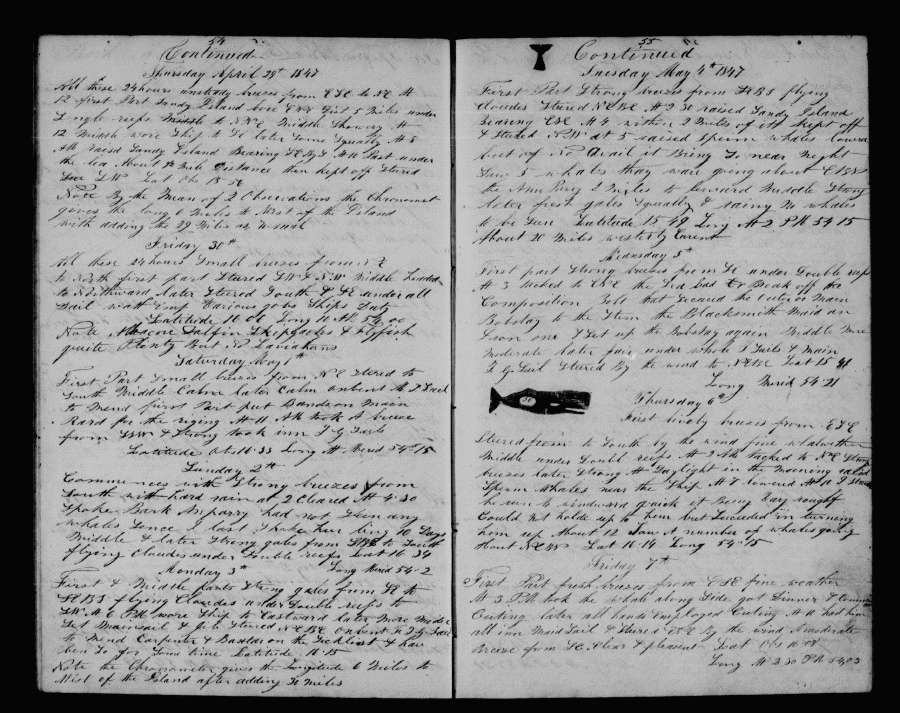 54
Continued
Thursday April 29th 1847
All these 24 hours unsteady breezes from ESE to NE At
12 first Part Sandy Island bore ENE Dist 5 Miles under
Single reefs Middle to NNE Middle Showery At
12 Midsh wore Ship to SE later Some Squally At 8
AM raised Sandy Island Bearing At 11 Past under
the lea About Mile Distance then kept off Stered
SW Lat Obs 15 50
Note By the Mean of 2 Observations the Chronomet
gives the Long 6 Miles to West of the Island
with adding the 29 Miles as usual
Friday 30th
All these 24 hours Small breezes from NE
to North first part Stered SW & NW Middle headed
to Northward later Stered South & SE under all
Sail
Latitude Long
Note Albacore Skipjacks & Flyfish
quite Plenty But No
Saturday May 1th
First Part Small breezes from NE Stered to
South Middle Calm later Calm unbent the Sail
to Mend first Part put Bands on Main
Yard for the riging At 11 AM took A breeze
from SSW & Strong took inn T G Sails
Latitude Obs 16·33 Long At Merid 54°15
Sunday 2th
Commences with Strong breezes from
South with hard rain at 2 Cleared At 4·30
Spoke Bark had not Seen any
whales Sence I last Spoke him bing 10 Days
Middle & later Strong gales from to South
flying Cloudes under Double reefs Lat 16 34
Monday 3th Long Merid 54·2
First & Middle parts Strong gales from SE to
SEBS flying Cloudes under Double reefs to
SW At 6 PM wore Ship to Eastward later More Moder
Set Mainsail & jib Stered NEBE Onbent F T G Sail
to Mend Carpenter & on the
ben So for Some time Latitude 16·15
Note the Chronometer gives the Longitude 6 Miles to
West of the Island after adding 30 Miles
55
Continued
Tuesday May 4th 1847
First Part Strong breezes from SEBS flying
Cloudes Stered NEBE At 2 30 raised Sandy Island
bearing ESE At 4 within 2 Miles of itt kept off
& Stered NW at 5 raised Sperm whales
but of No Avail it Being So near Night
Saw 5 whales thay were going about
the Ann Pery 2 Miles to leward Middle Strong
later fresh gales Squally & rainy No whales
to be Seen Latitude 15·49 Long At 2 PM 54·15
About 20 Miles westerly Curent
Wednsday 5th
First part Strong breezes from SE under Double reefs
At 3 tacked to ENE the Lad to Brok off the
Composition Bolt that Secured the Outer or Main
Bobstay to the Stem the Blacksmith Maid an
Iron one & Set up the Bobstay again Middle More
Moderate later fair under whole T Sails & Main
T G Sail Stered By the wind to NEBE Lat 15·41
Long Merid 54·21
Thursday 6th
30
First lively breezes from ESE
Stered from to South by the wind fine whether
Middle under Doubl reefs At 2 AM tacked to NE Strong
breezes later Strong At Daylight in the Morning
Sperm Whales near the Ship At 7 lowered At 10
he run to windward quick it Being Vary rough
Could Not holde up to him but Suceeded in turning
him up About 12 Saw A number of whales going
About NEBN Lat 16·14 Long 54·15
Friday 7th
First Part fresh breezes from ESE fine weather
At 3 PM took the whale along Side got Dinner &
Cuting later all hands Employed Cuting At 11 had him
all inn Maid Sail & Stered ENE By the wind A moderate
Breeze from SE Clear & pleasant Lat Obs 16·08
Long At 2 30 PM 54,03